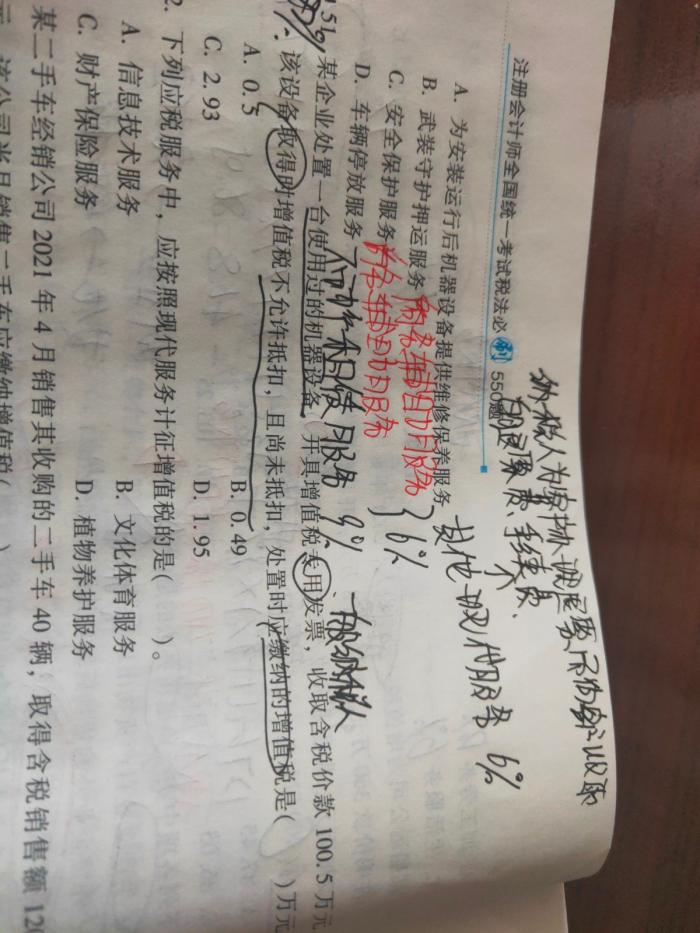 注册会计师全国统一考试税法必刷550题
纳税人为客
自
手续费、
A. 为安装运行后机器设备提供维修保养服务
其他现代服务 6%
B. 武装守护押运服务
商务辅助服务
6%
C. 安全保护服务
商务辅助服务
D. 车辆停放服务
不动产租赁服务 9%
一般纳税人
51
某企业处置一台使用过的机器设备,开具增值税专用发票,收取含税价款 100.5 万元
该设备取得时增值税不允许抵扣,且尚未抵扣,处置时应缴纳的增值税是( )万元
A. 0.5
B. 0.49
C. 2.93
D. 1.95
2. 下列应税服务中,应按照现代服务计征增值税的是( )。
A. 信息技术服务
B. 文化体育服务
C. 财产保险服务
D. 植物养护服务
某二手车经销公司 2021 年 4 月销售其收购的二手车 40 辆,取得含税销售额 12
该公司当月销售二手车应缴纳增值税( )